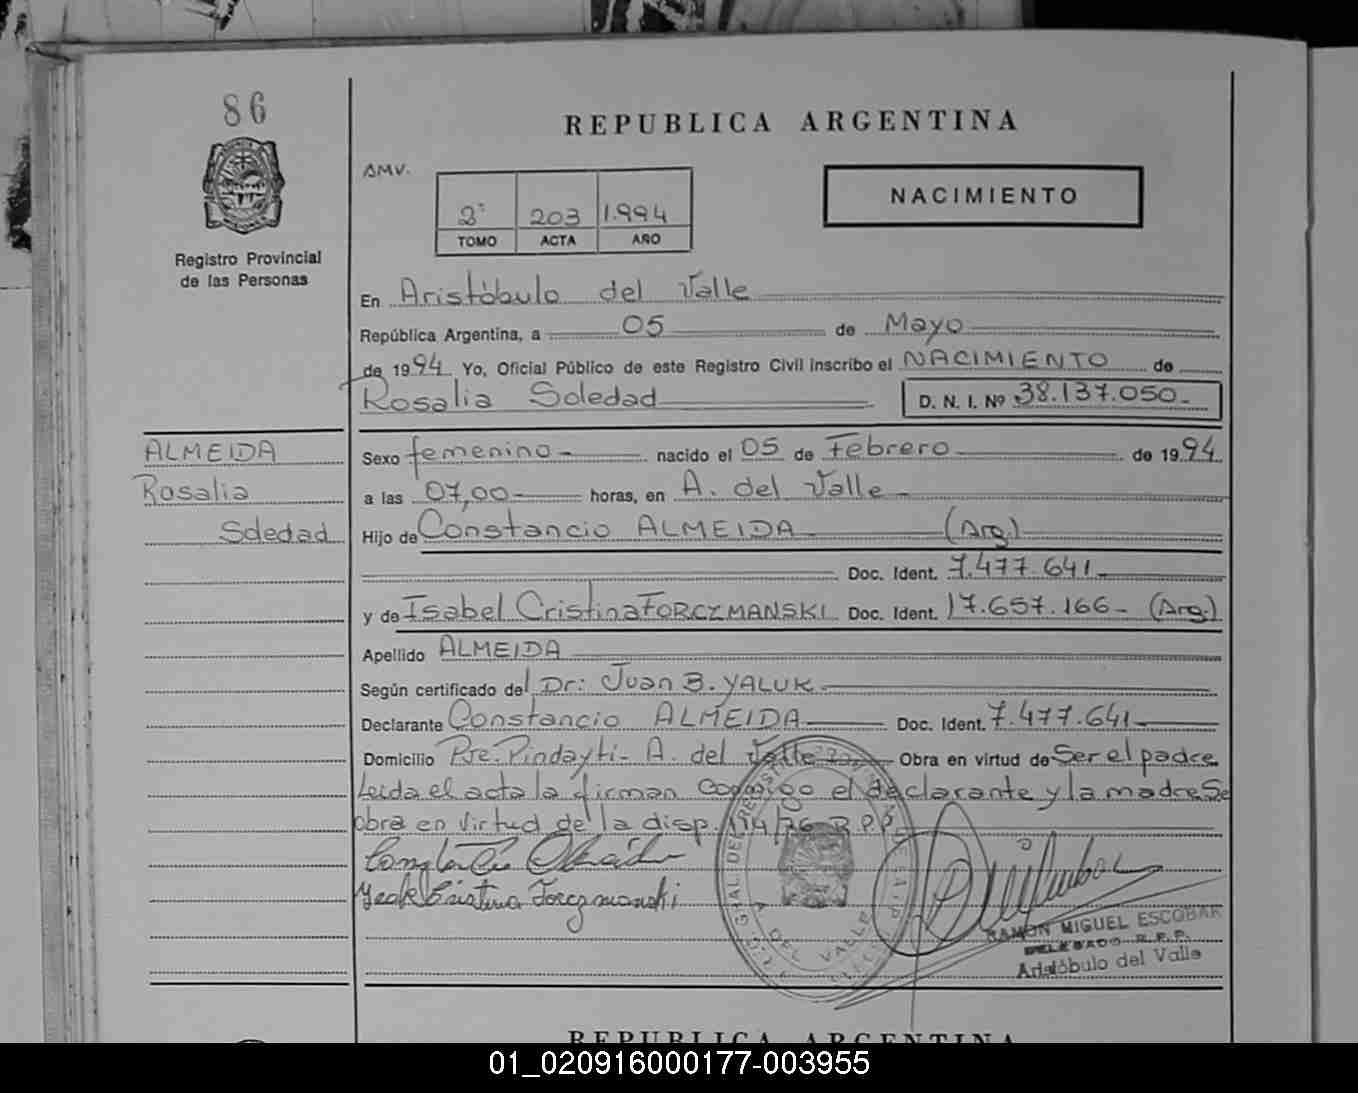 86
REPUBLICA ARGENTINA
AMV.
2º 203 1.994
TOMO ACTA AÑO
NACIMIENTO
Registro Provincial
de las Personas
En Aristóbulo del Valle
República Argentina, a 05 de Mayo
de 1994 Yo, Oficial Público de este Registro Civil inscribo el NACIMIENTO de
Rosalia Soledad D. N. I. Nº 38.137.050-
ALMEIDA
Rosalia
Soledad
Sexo femenino- nacido el 05 de Febrero de 1994
a las 07,00- horas, en A. del Valle-
Hijo de Constancio ALMEIDA (Arg.)
Doc. Ident. 7.477.641-
y de Isabel Cristina FORCZMANSKI Doc. Ident. 17.657.166- (Arg.)
Apellido ALMEIDA
Según certificado del Dr: Juan B. YALUK-
Declarante Constancio ALMEIDA Doc. Ident. 7.477.641-
Domicilio Pje. Pindayti- A. del Valle Obra en virtud de Ser el padre
Leida el acta la firman Conmigo el declarante y la madre Se
obra en virtud de la disp. 194/76 R.P.P.
Cristina Forczmanski
A DEL VALLE
RAMON MIGUEL ESCOBAR
DELEGADO R.P.P.
Aristóbulo del Valle
REPUBLICA ARGENTINA
01_020916000177-003955